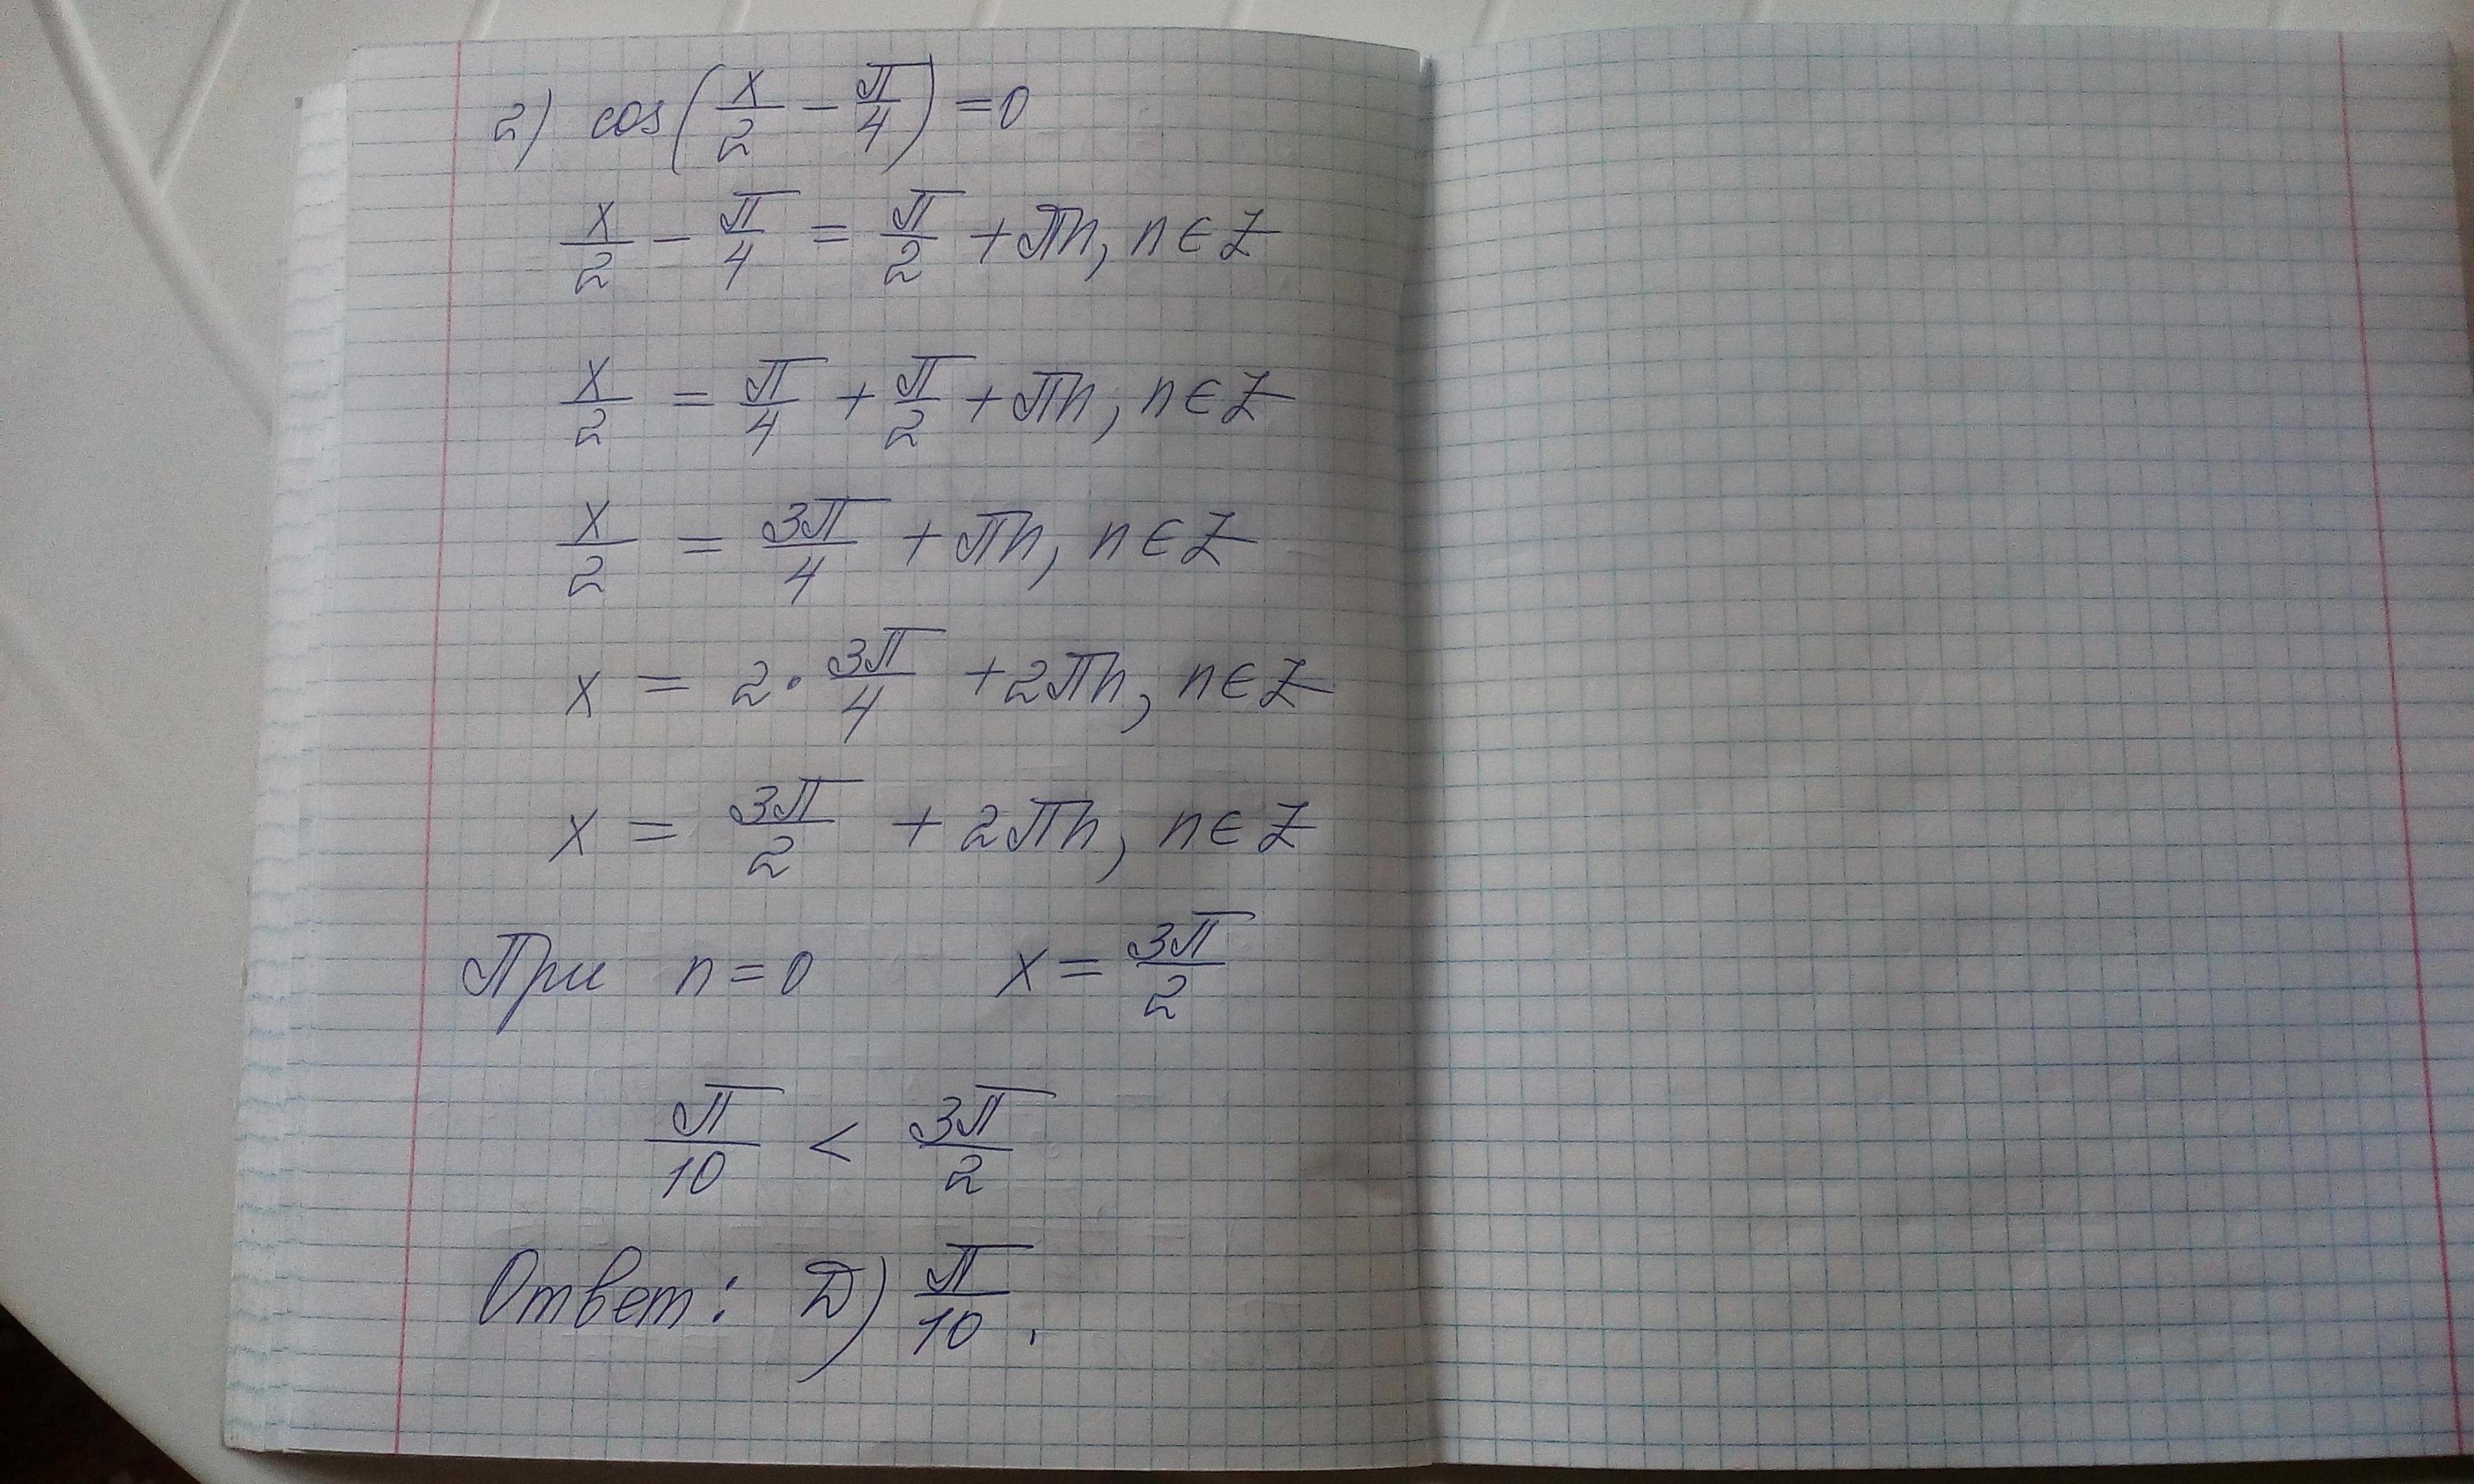 2) cos(x/2 - π/4) = 0
x/2 - π/4 = π/2 + πn, n ∈ Z
x/2 = π/4 + π/2 + πn, n ∈ Z
x/2 = 3π/4 + πn, n ∈ Z
x = 2 · 3π/4 + 2πn, n ∈ Z
x = 3π/2 + 2πn, n ∈ Z
При n = 0 x = 3π/2
π/10 < 3π/2
Ответ: Д) π/10.